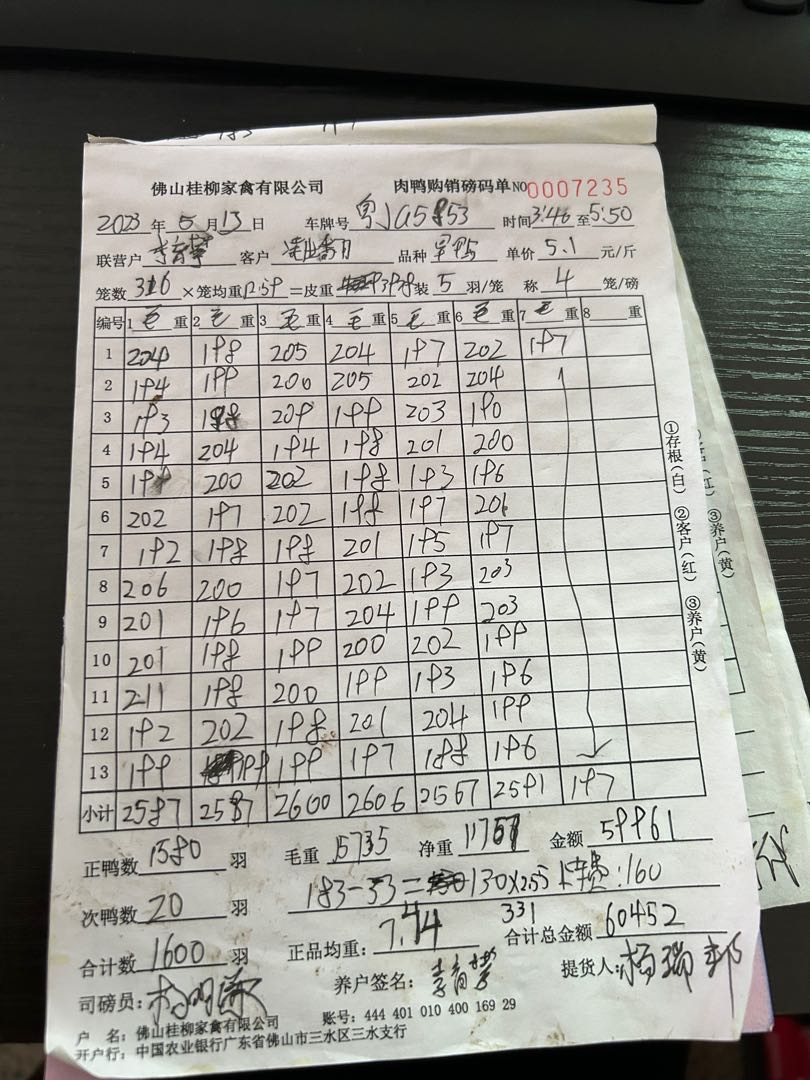 佛山桂柳家禽有限公司 肉鸭购销磅码单 NO 0007235
2023 年 5 月 13 日 车牌号 粤JG5853 时间 3:46 至 5:50
联营户 客户 品种 单价 5.1 元/斤
笼数 316 ×笼均重 12.59 =皮重 3978 装 5 羽/笼 称 4 笼/磅
编号 1 毛 重 2 毛 重 3 毛 重 4 毛 重 5 毛 重 6 毛 重 7 毛 重 8 重
1 204 198 205 204 197 202 197
2 194 199 200 205 202 204
3 193 198 209 199 203 190
4 194 204 194 198 201 200
5 200 202 198 193 196
6 202 197 202 198 197 201
7 192 198 198 201 195 197
8 206 200 197 202 193 203
9 201 196 197 204 199 203
10 201 198 199 200 202 199
11 211 198 200 199 193 196
12 192 202 198 201 204 199
13 199 199 199 197 188 196
小计 2587 2587 2600 2606 2567 2591 197
正鸭数 1580 羽 毛重 15735 净重 11757 金额 59961
183-53= 130×2.55 卡费:160
次鸭数 20 羽
331
合计数 1600 羽 正品均重: 7.44 合计总金额 60452
司磅员: 养户签名: 提货人: 杨瑞邦
户 名: 佛山桂柳家禽有限公司 账号: 444 401 010 400 169 29
开户行: 中国农业银行广东省佛山市三水区三水支行
①存根(白) ②客户(红) ③养户(黄)
③养户(黄)